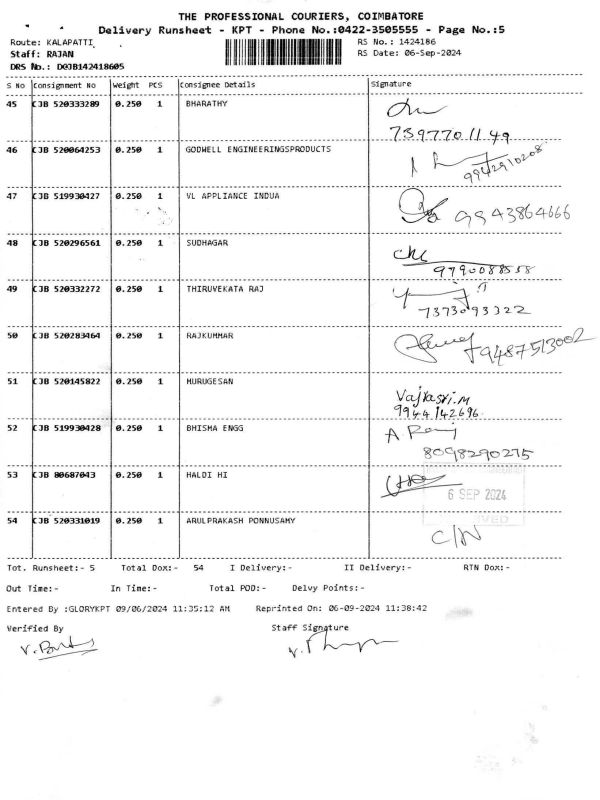 THE PROFESSIONAL COURIERS, COIMBATORE
Delivery Runsheet - KPT - Phone No.:0422-3505555 - Page No.:5
Route: KALAPATTI RS No.: 1424186
Staff: RAJAN RS Date: 06-Sep-2024
DRS No.: DCJB142418605
S No Consignment No Weight PCS Consignee Details Signature
45 CJB 520333289 0.250 1 BHARATHY
7397701149
46 CJB 520064253 0.250 1 GODWELL ENGINEERINGSPRODUCTS
9942910208
47 CJB 519930427 0.250 1 VL APPLIANCE INDUA
9943864666
48 CJB 520296561 0.250 1 SUDHAGAR
9790088558
49 CJB 520332272 0.250 1 THIRUVEKATA RAJ
7373093322
50 CJB 520283464 0.250 1 RAJKUMMAR
9487513002
51 CJB 520145822 0.250 1 MURUGESAN
9944142696
52 CJB 519930428 0.250 1 BHISMA ENGG
8098290275
53 CJB 80687043 0.250 1 HALDI HI
6 SEP 2024
54 CJB 520331019 0.250 1 ARULPRAKASH PONNUSAMY
C/N
Tot. Runsheet:- 5 Total Dox:- 54 I Delivery:- II Delivery:- RTN Dox:-
Out Time:- In Time:- Total POD:- Delvy Points:-
Entered By :GLORYKPT 09/06/2024 11:35:12 AM Reprinted On: 06-09-2024 11:38:42
Verified By Staff Signature